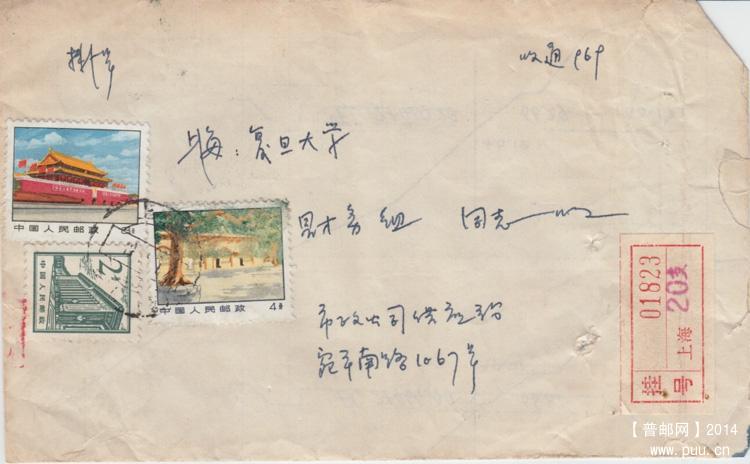 挂号
收通 969
上海：复旦大学
财务组 同志 收
中国人民邮政 8分
中国人民邮政 2分
中国人民邮政 4分
市政公司供应站
宛平南路1067号
01823
挂号 上海 20支
【普邮网】2014
www.puu.cn